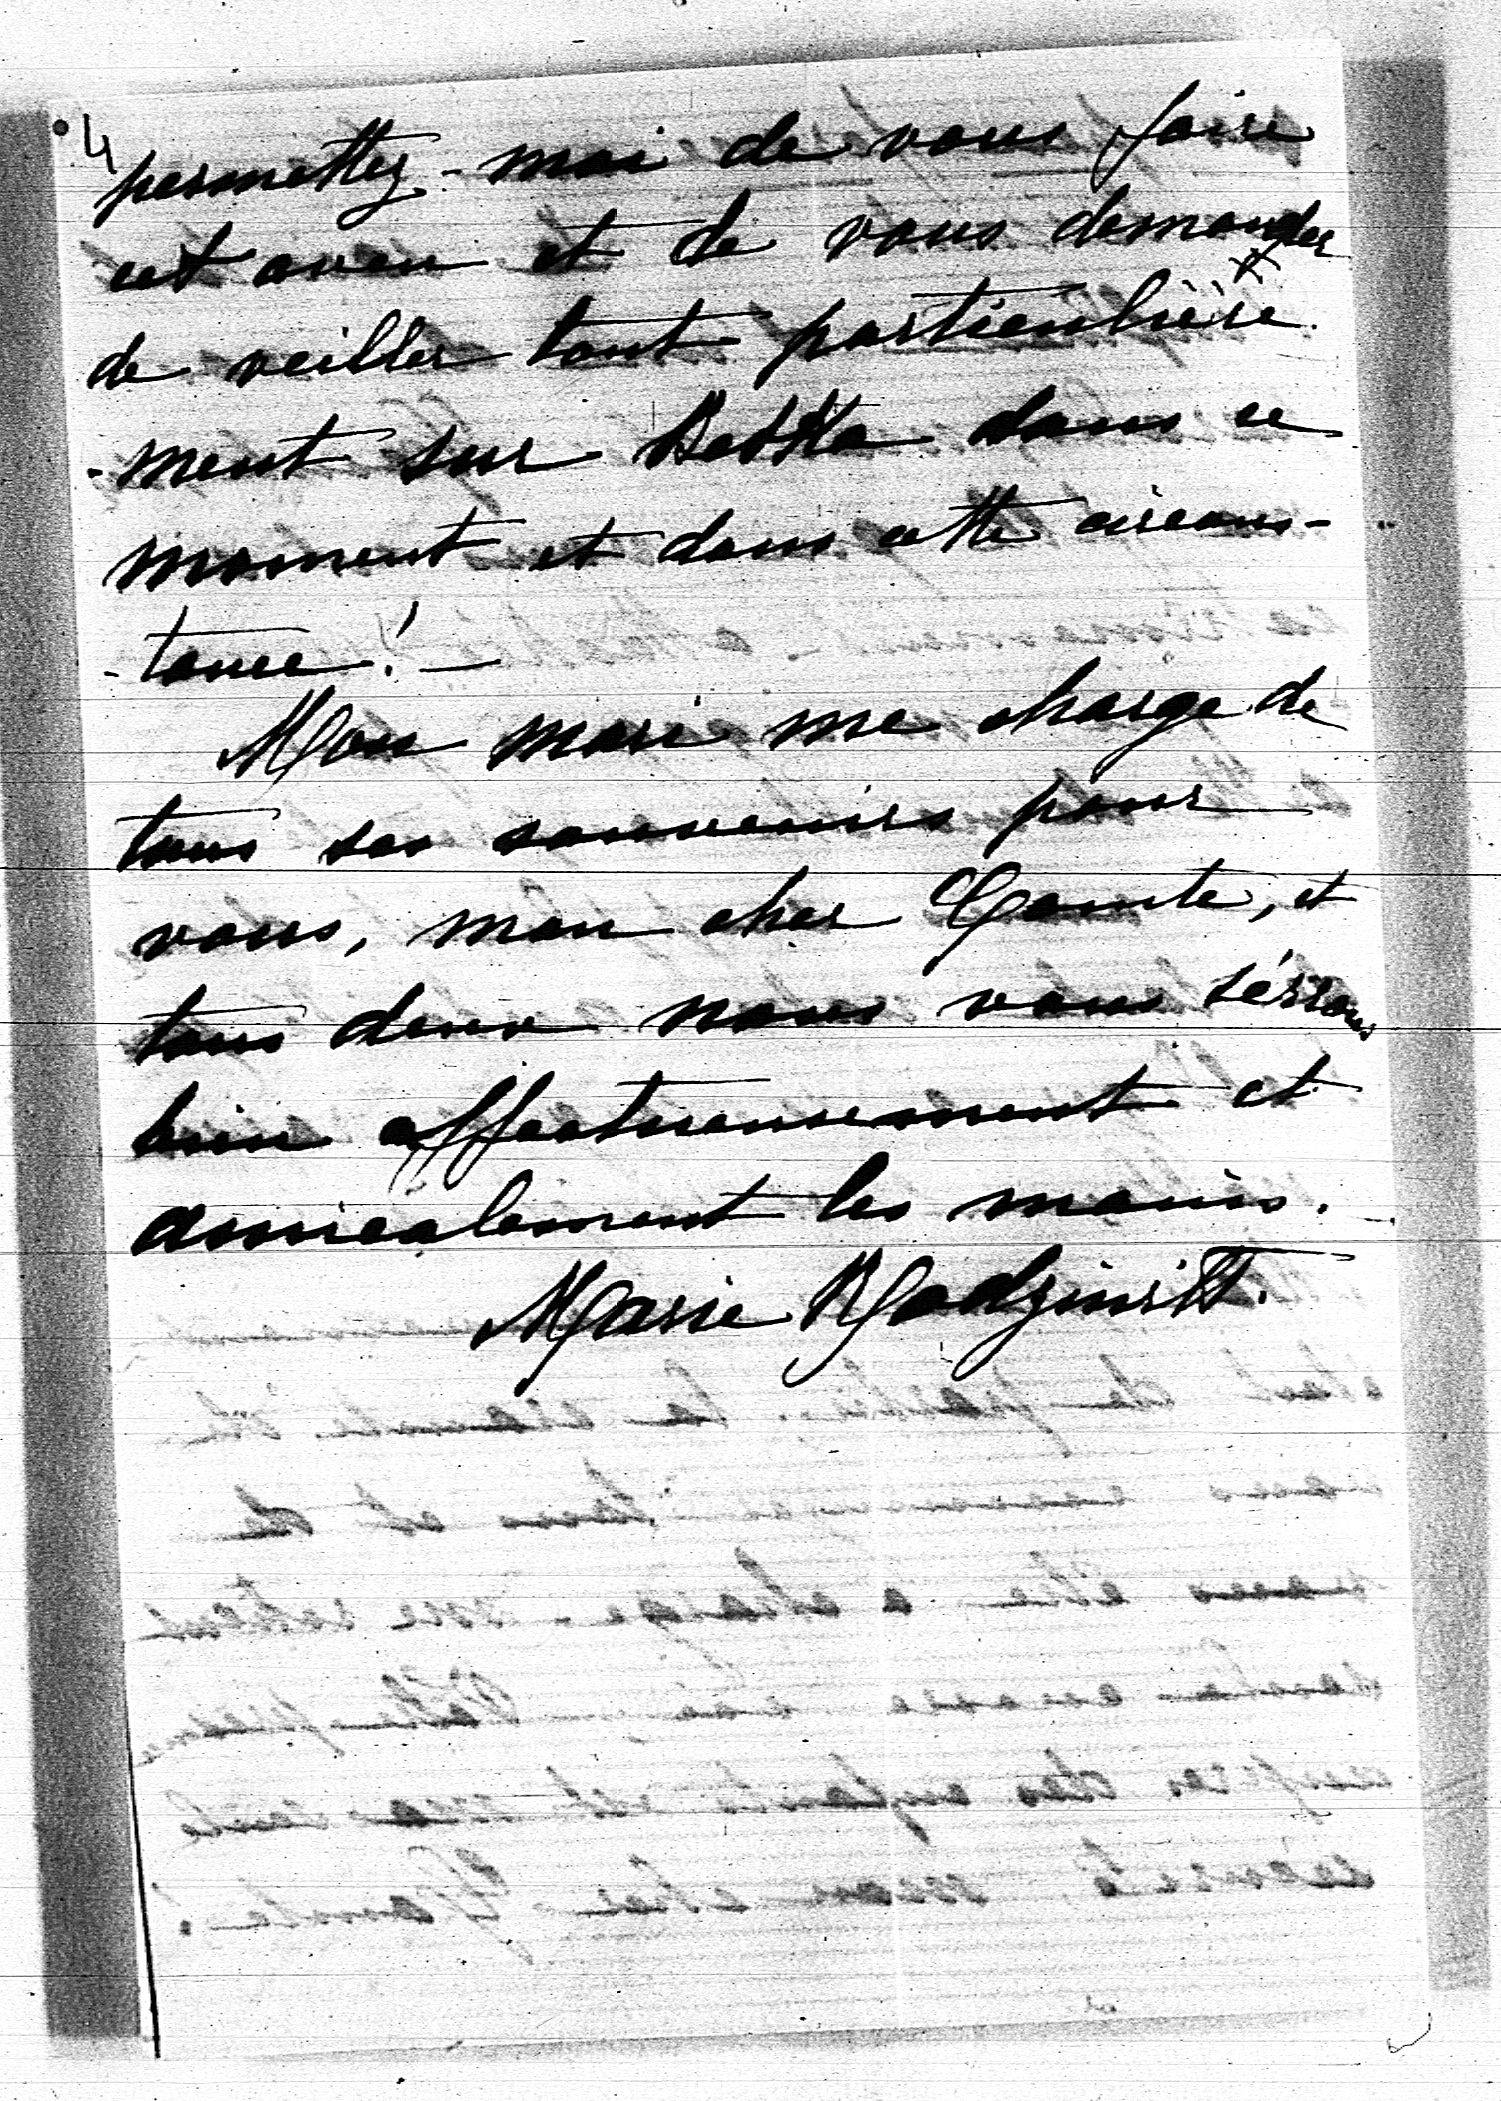 4
permettez-moi de vous faire
cet aveu et de vous demander
de veiller tout particulière
-ment sur Betka dans ce
moment et dans cette circons-
-tance! —
Mon mari me charge de
tous ses souvenirs pour
vous, mon cher Comte, et
tous deux nous vous sérrons
bien affectueusement et
amicalement les mains.
Marie Rodziwill.